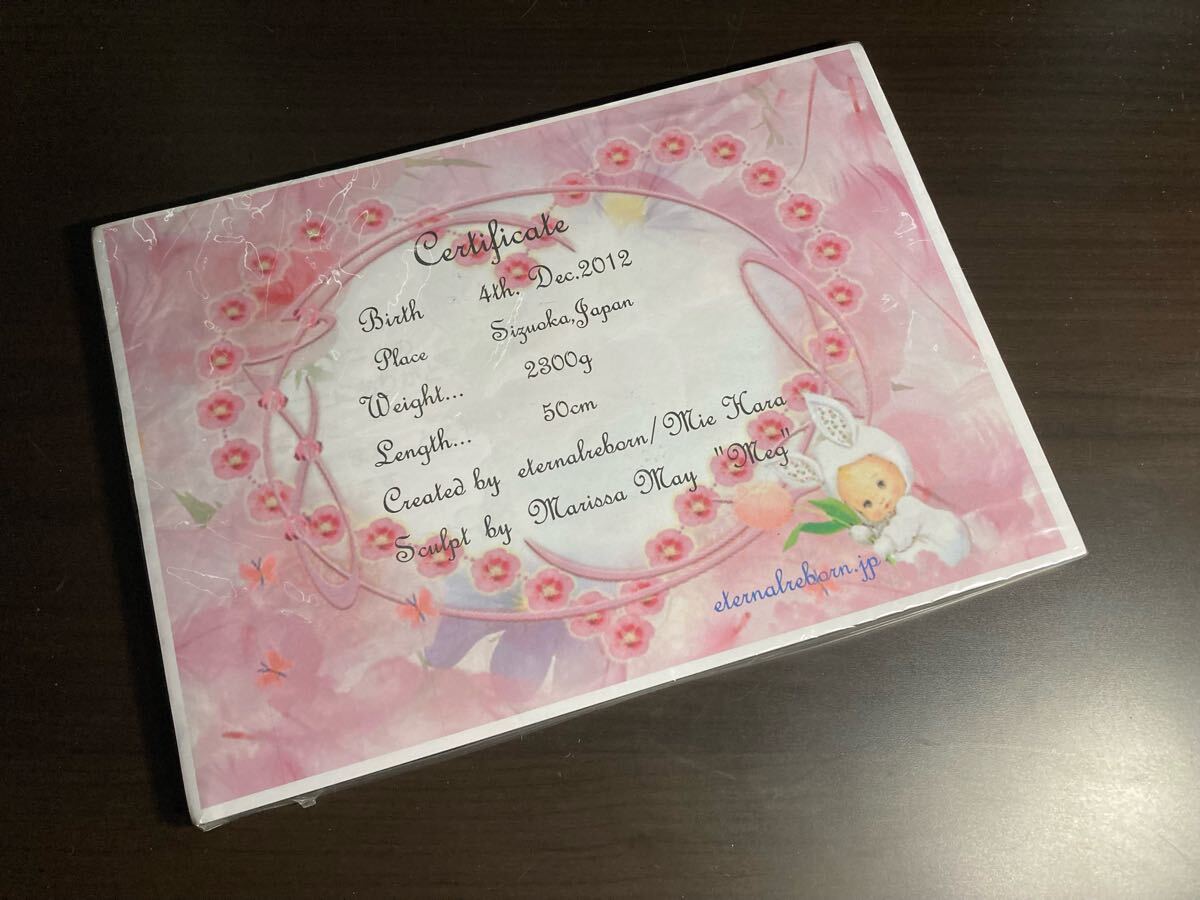 Certificate
Birth 4th. Dec.2012
Place Sizuoka,Japan
Weight... 2300g
Length... 50cm
Created by eternalreborn/Mie Hara
Sculpt by Marissa May "Meg"
eternalreborn.jp